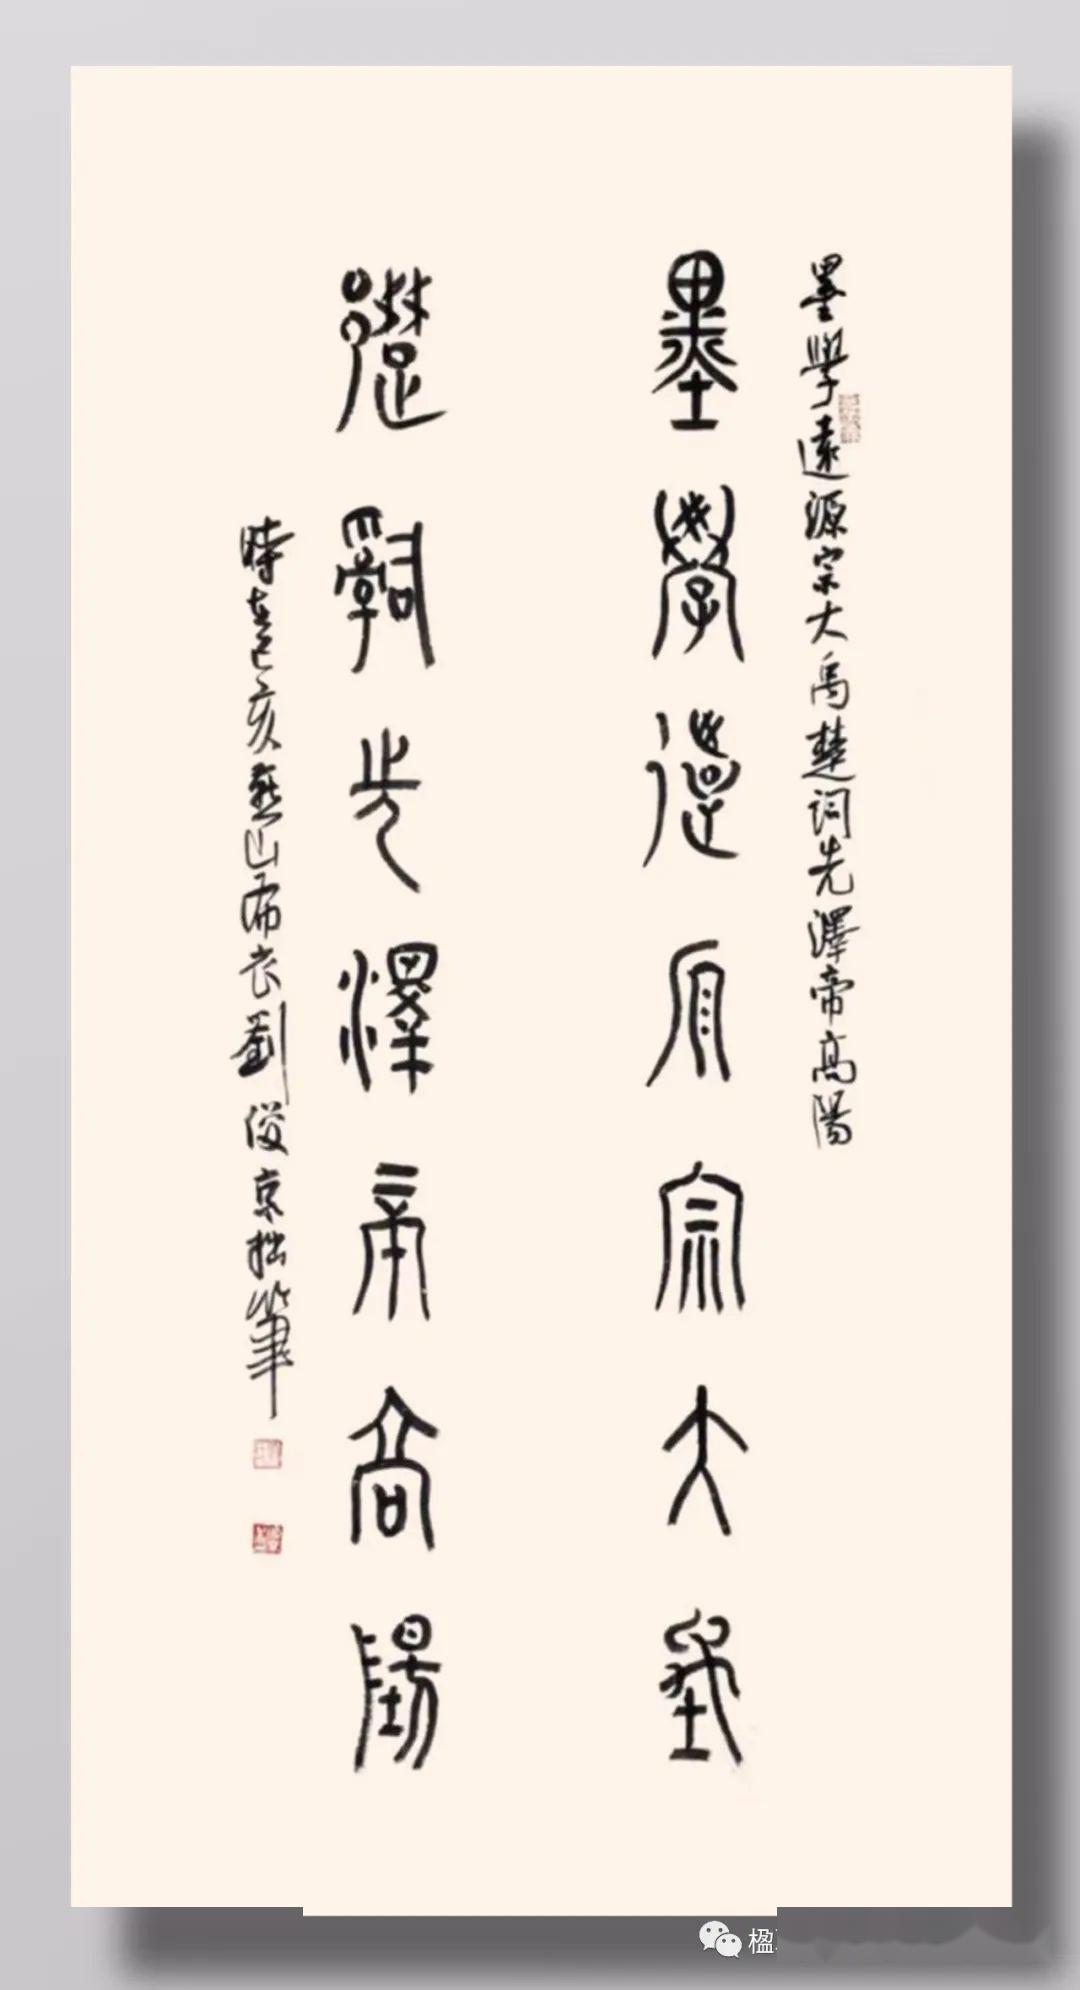 墨學遠源宗大禹楚詞先澤帝高陽
墨學遠原宗大禹
楚辭先澤帝高陽
時在己亥燕山布衣劉俊京拙筆
楹